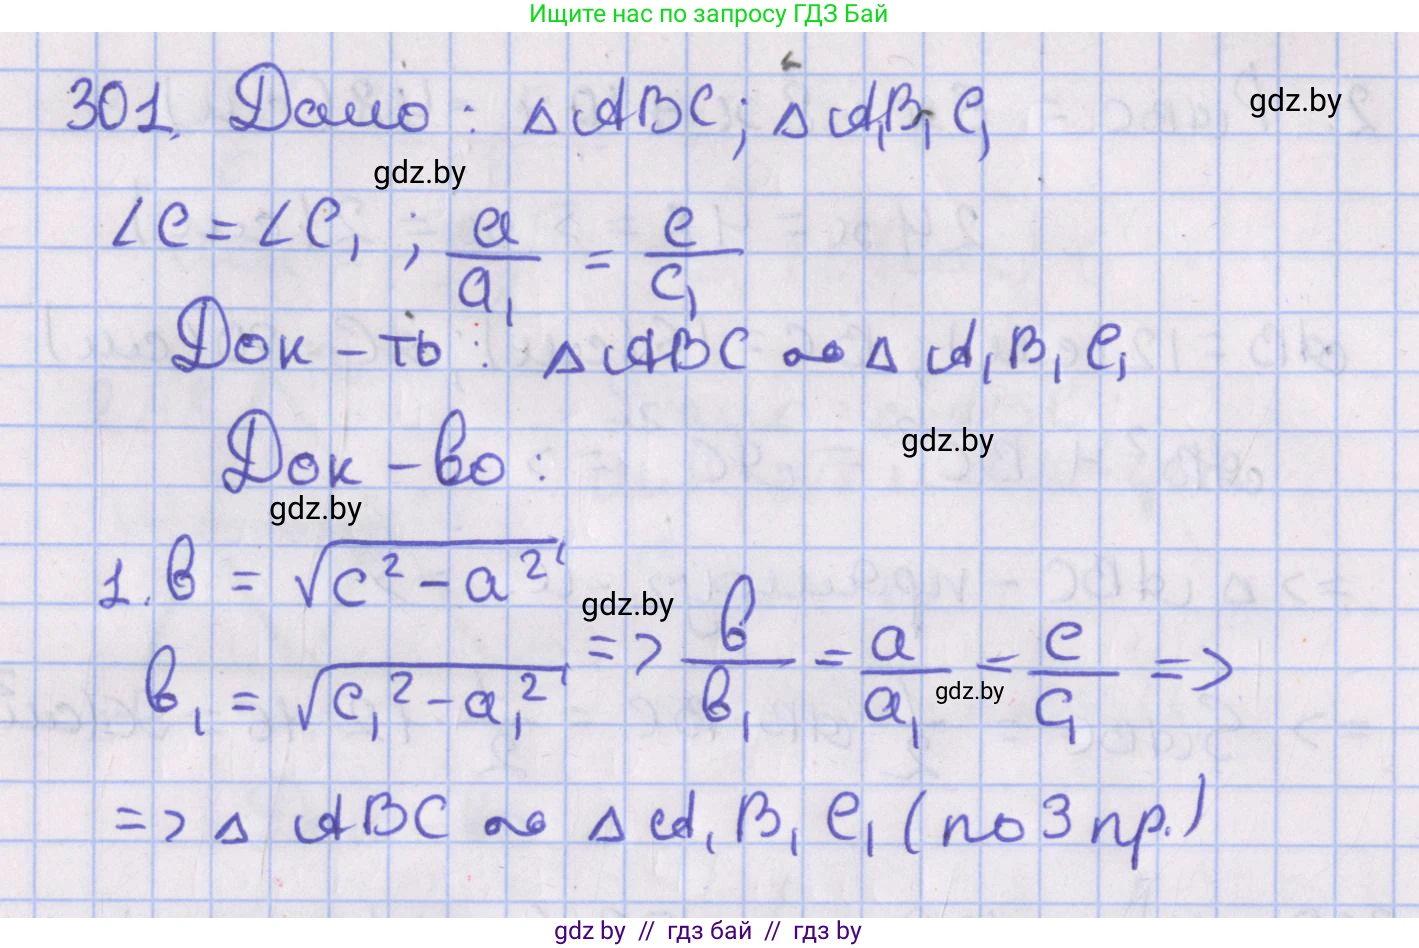 Ищите нас по запросу ГДЗ Бай
301. Дано: △ABC; △A₁B₁C₁
gdz.by
gdz.by
∠C = ∠C₁; a/a₁ = c/c₁
Док-ть: △ABC ∾ △A₁B₁C₁
gdz.by
Док-во:
gdz.by
1. в = √(c² - a²)
gdz.by
в₁ = √(c₁² - a₁²) => в/в₁ = a/a₁ = c/c₁ =>
gdz.by
=> △ABC ∾ △A₁B₁C₁ (по 3 пр.)
gdz.by // гдз бай // гдз by